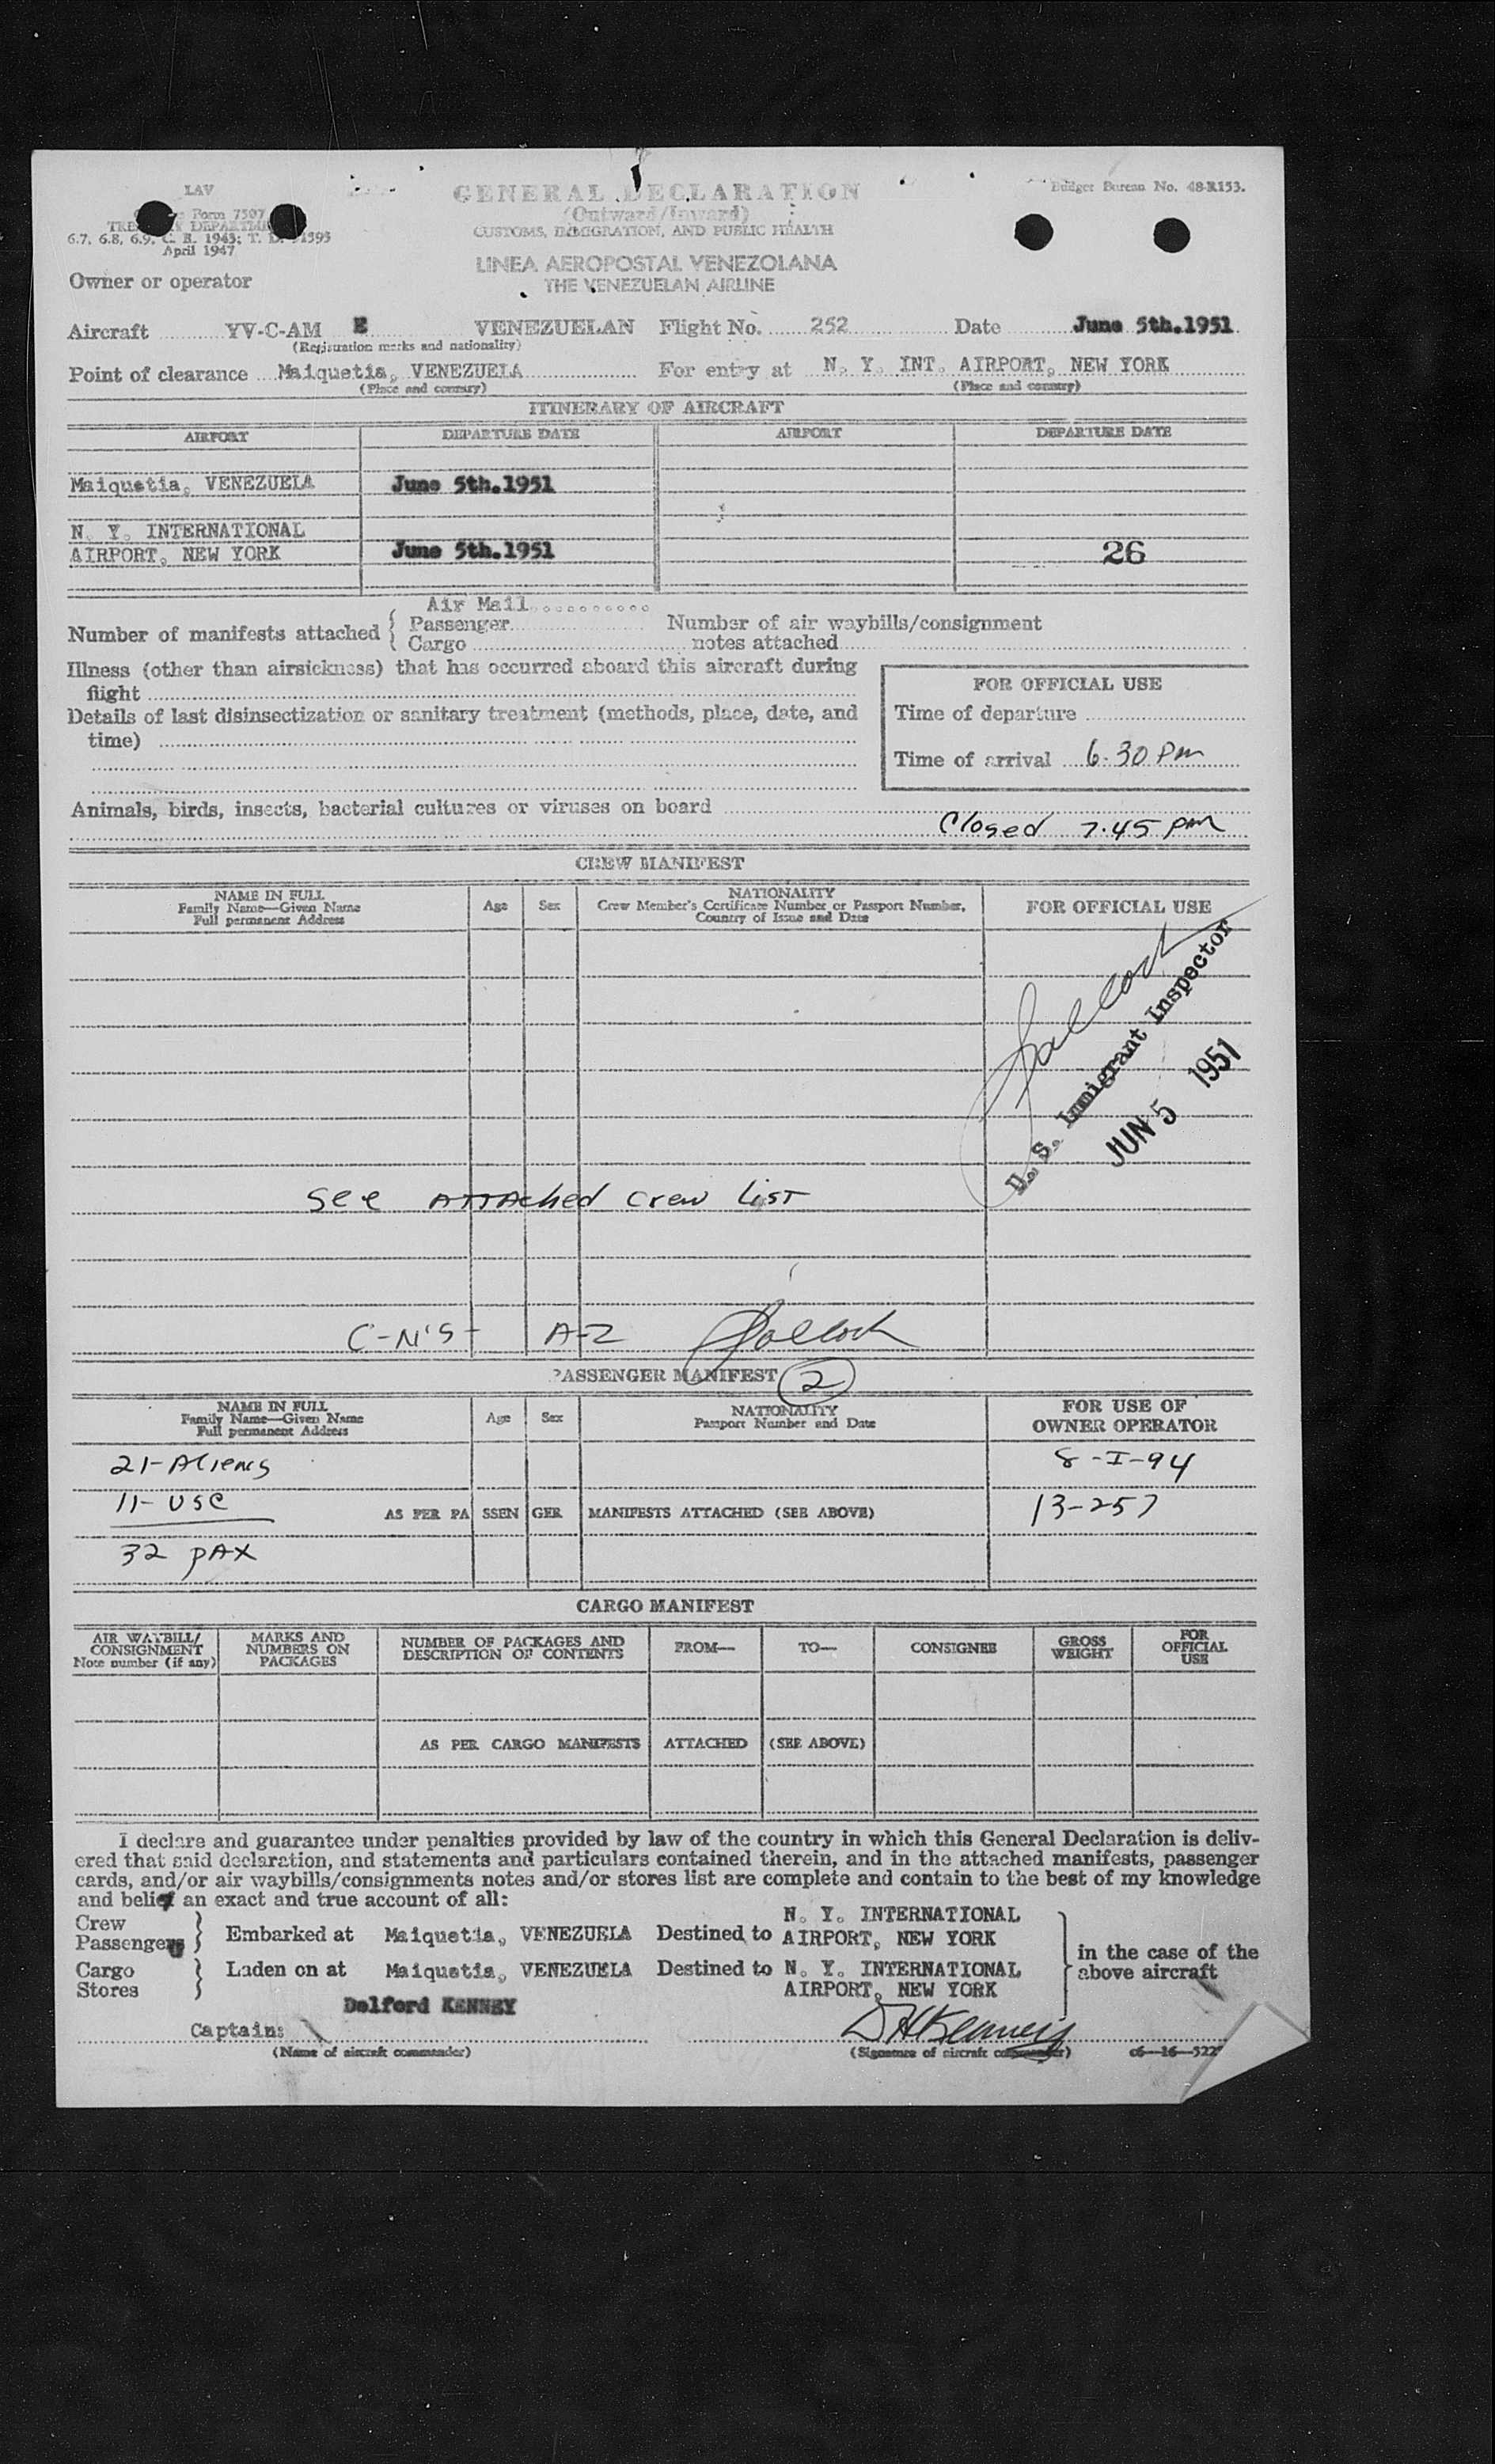 LAV
Form 7507
GENERAL DECLARATION
(Outward/Inward)
Budget Bureau No. 48-R153.
CUSTOMS, IMMIGRATION, AND PUBLIC HEALTH
6.7, 6.8, 6.9, C. R. 1945; T. D.
April 1947
LINEA AEROPOSTAL VENEZOLANA
THE VENEZUELAN AIRLINE
Owner or operator
Aircraft YV-C-AM E VENEZUELAN Flight No. 252 Date June 5th.1951
(Registration marks and nationality)
Point of clearance Maiquetia, VENEZUELA For entry at N. Y. INT. AIRPORT, NEW YORK
(Place and country) (Place and country)
ITINERARY OF AIRCRAFT
AIRPORT DEPARTURE DATE AIRPORT DEPARTURE DATE
Maiquetia, VENEZUELA June 5th.1951
N. Y. INTERNATIONAL
AIRPORT, NEW YORK June 5th.1951 26
Air Mail
Number of manifests attached { Passenger Number of air waybills/consignment
Cargo notes attached
Illness (other than airsickness) that has occurred aboard this aircraft during
flight
FOR OFFICIAL USE
Details of last disinsectization or sanitary treatment (methods, place, date, and
time)
Time of departure
Time of arrival 6.30 Pm
Animals, birds, insects, bacterial cultures or viruses on board
Closed 7.45 pm
CREW MANIFEST
NAME IN FULL
Family Name—Given Name
Full permanent Address
Age
Sex
NATIONALITY
Crew Member's Certificate Number or Passport Number,
Country of Issue and Date
FOR OFFICIAL USE
U. S. Immigrant Inspector
JUN 5 1951
See ATTAched crew LisT
C-N'S- A-2
PASSENGER MANIFEST 2
NAME IN FULL
Family Name—Given Name
Full permanent Address
Age
Sex
NATIONALITY
Passport Number and Date
FOR USE OF
OWNER OPERATOR
21-Aliens 8-I-94
11-USC AS PER PASSENGER MANIFESTS ATTACHED (SEE ABOVE) 13-257
32 pAX
CARGO MANIFEST
AIR WAYBILL/
CONSIGNMENT
Note number (if any)
MARKS AND
NUMBERS ON
PACKAGES
NUMBER OF PACKAGES AND
DESCRIPTION OF CONTENTS
FROM—
TO—
CONSIGNEE
GROSS
WEIGHT
FOR
OFFICIAL
USE
AS PER CARGO MANIFESTS ATTACHED (SEE ABOVE)
I declare and guarantee under penalties provided by law of the country in which this General Declaration is deliv-
ered that said declaration, and statements and particulars contained therein, and in the attached manifests, passenger
cards, and/or air waybills/consignments notes and/or stores list are complete and contain to the best of my knowledge
and belief an exact and true account of all:
Crew
Passengers } Embarked at Maiquetia, VENEZUELA Destined to N. Y. INTERNATIONAL
AIRPORT, NEW YORK
Cargo
Stores } Laden on at Maiquetia, VENEZUELA Destined to N. Y. INTERNATIONAL
AIRPORT, NEW YORK
in the case of the
above aircraft
Delford KENNEY
Captain: DHKenney
(Name of aircraft commander) (Signature of aircraft commander)